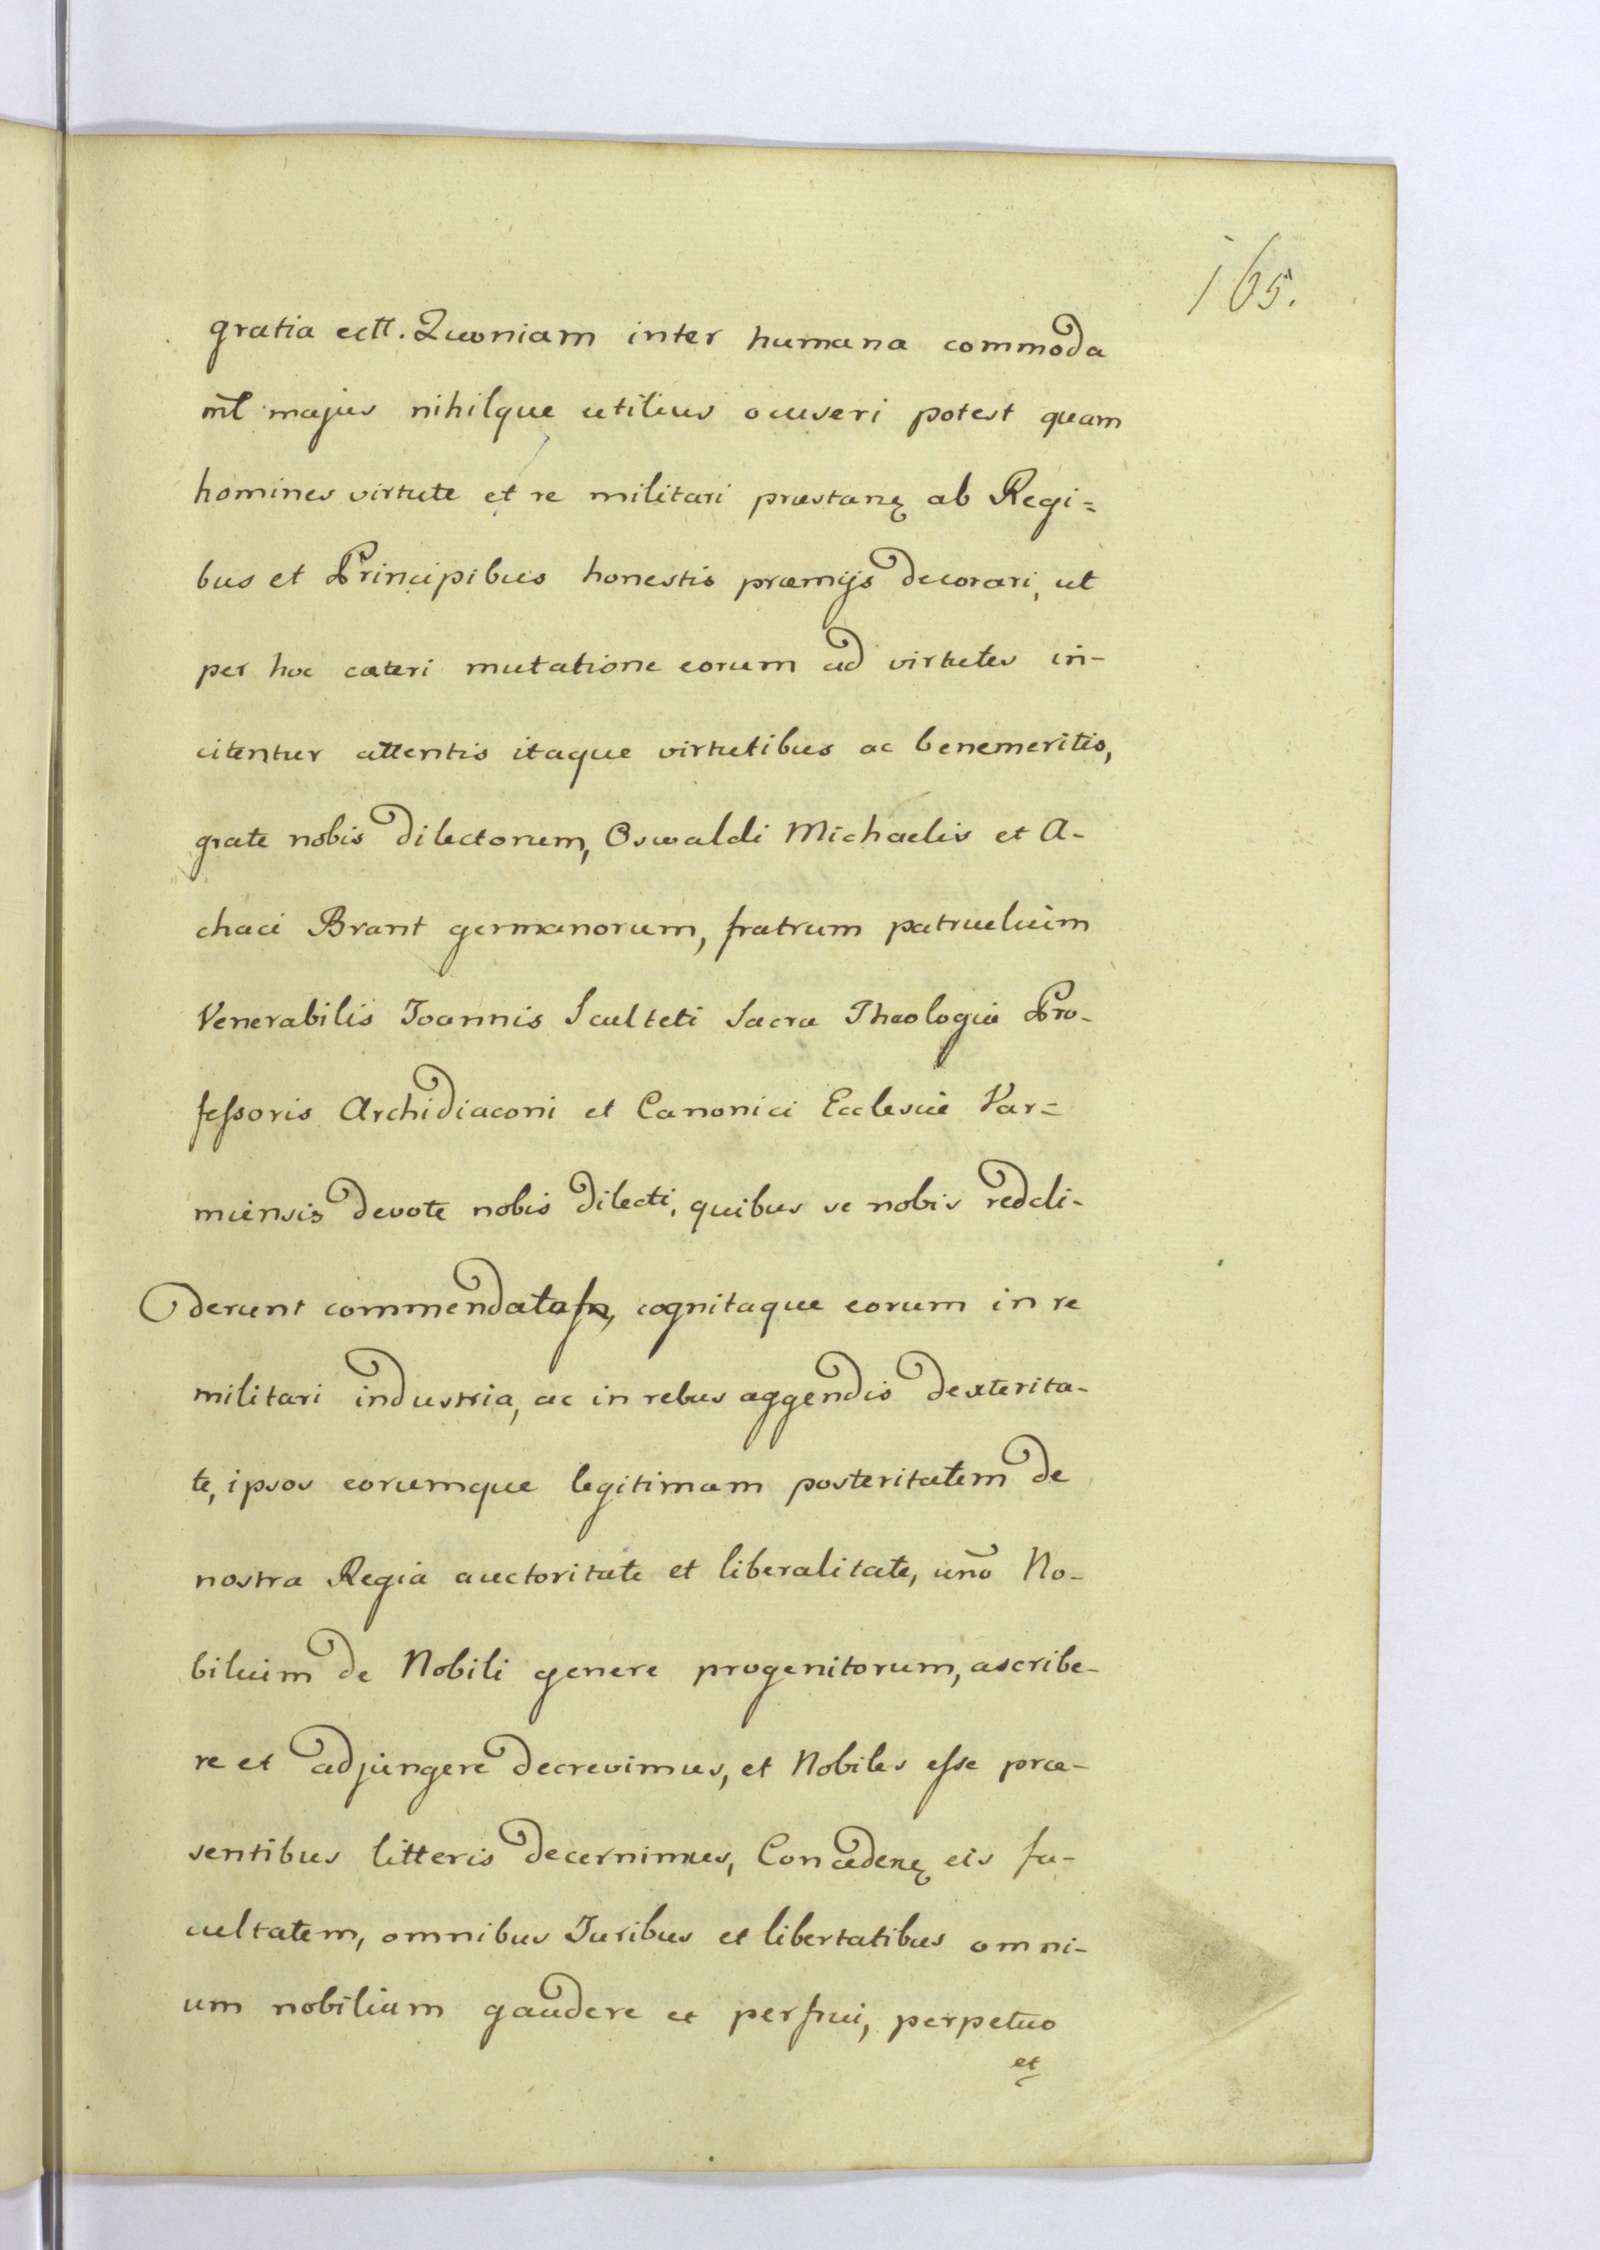 165.
gratia ectt. Quoniam inter humana commoda
nil majus nihilque utilius censeri potest quam
homines virtute et re militari præstanę ab Regi=
bus et Principibus honestis præmijs decorari, ut
per hoc cæteri mutatione eorum ad virtutes in-
citentur attentis itaque virtutibus ac benemeritis,
grate nobis dilectorum, Oswaldi Michaelis et A-
chaci Brant germanorum, fratrum patruelium
Venerabilis Joannis Sculteti Sacræ Theologiæ Pro-
fessoris Archidiaconi et Canonici Ecclesiæ Var=
miensis devote nobis dilecti, quibus se nobis reddi-
derunt commendatos, cognitaque eorum in re
militari industria, ac in rebus aggendis dexterita-
te, ipsos eorumque legitimam posteritatem de
nostra Regia auctoritate et liberalitate, uño No-
bilium de Nobili genere progenitorum, ascribe-
re et adjungere decrevimus, et Nobiles esse præ-
sentibus litteris decernimus, Concedenę eis fa-
cultatem, omnibus Juribus et libertatibus omni-
um nobilium gaudere et perfrui, perpetuo
et